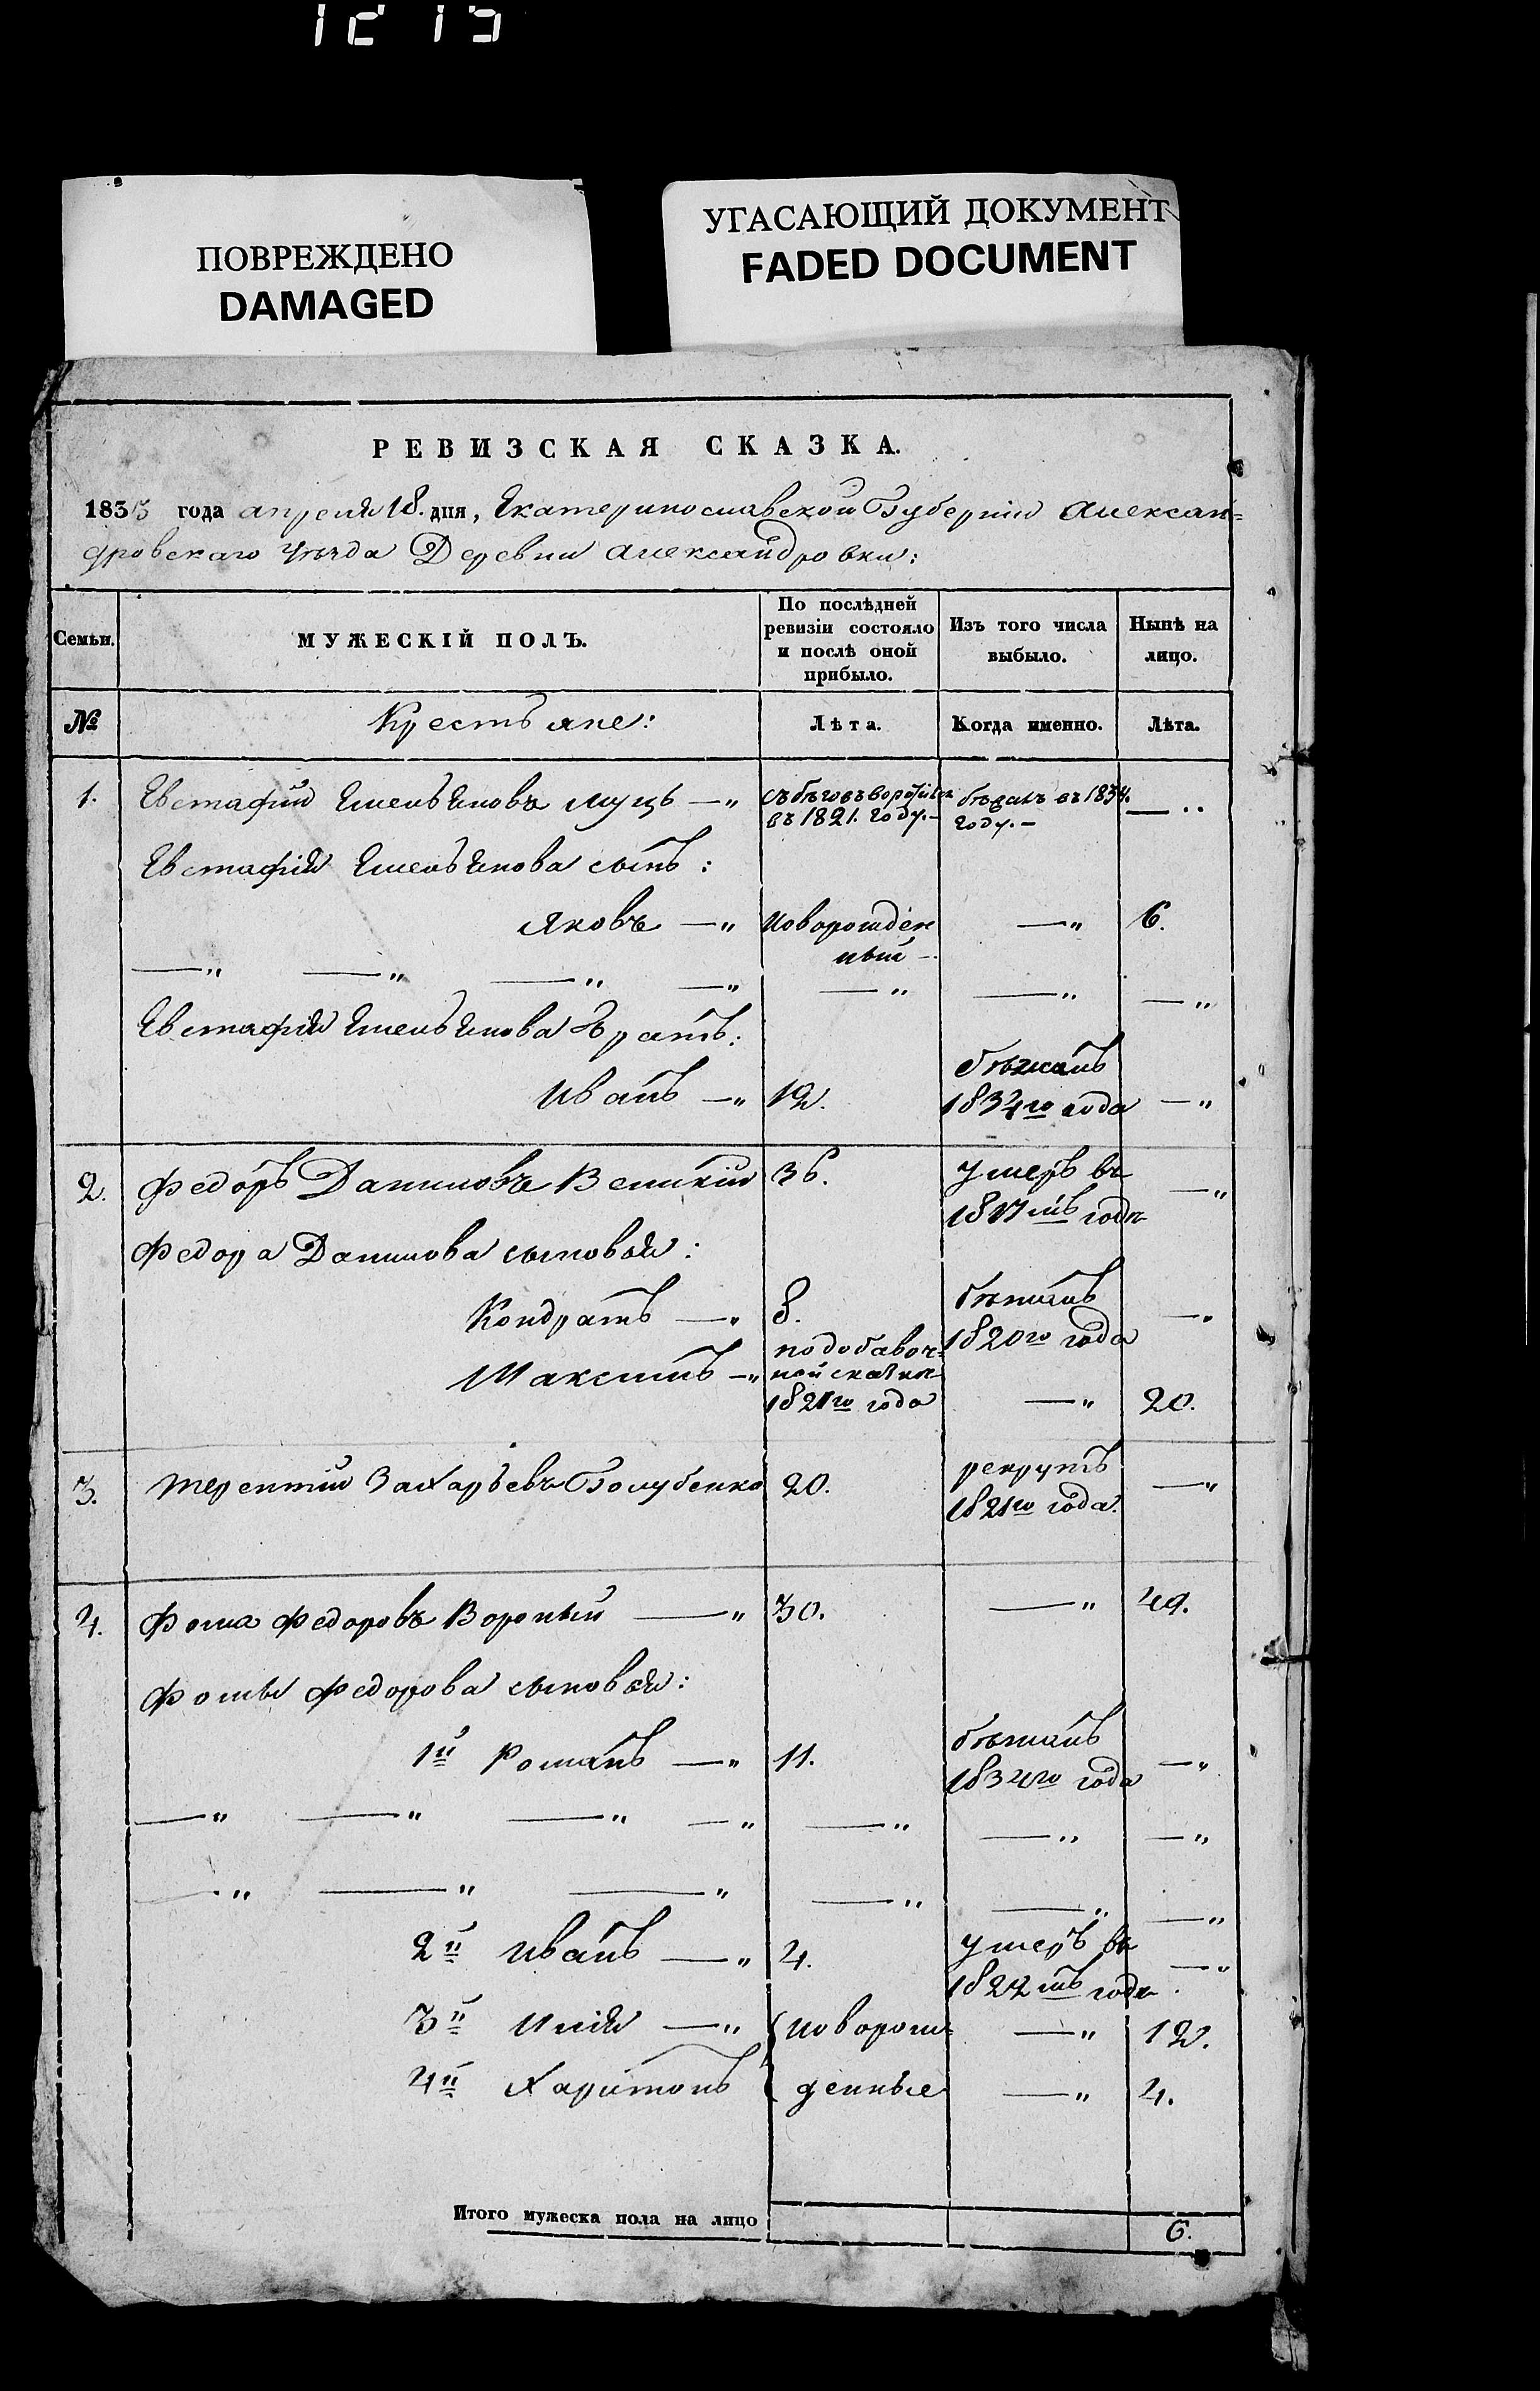 12 15
ПОВРЕЖДЕНО
DAMAGED
УГАСАЮЩИЙ ДОКУМЕНТ
FADED DOCUMENT
РЕВИЗСКАЯ СКАЗКА.
1835 года апреля 18. дня, Екатеринославской Губерніи Алексан=
дровскаго Уѣзда Деревни Александровки:
Семьи. МУЖЕСКІЙ ПОЛЪ. По послѣдней ревизіи состояло и послѣ оной прибыло. Изъ того числа выбыло. Нынѣ на лицо.
№ Крестьяне: Лѣта. Когда именно. Лѣта.
1. Евстафій Емельяновъ Муць —„ съ бѣговъ воротился въ 1821. году.— бѣжалъ въ 1834. году.— —„
Евстафія Емельянова сынъ:
Яковъ —„ Новорожден ный — —„ 6.
—„ —„ —„ —„ —„ —„ —„
Евстафія Емельянова братъ:
Иванъ —„ 12. бѣжалъ 1834го года —„
2. Федоръ Даниловъ Великій 36. умеръ въ 1817мъ годѣ —„
Федора Данилова сыновья:
Кондратъ —„ 8. бѣжалъ 1820го года —„
Максимъ —„ по добавоч= ной сказкѣ 1821го года —„ 20.
3. Терентій Захарьевъ Голубенко 20. рекрутъ 1821го года. —„
4. Фома Федоровъ Вороный —„ 30. —„ 49.
Фомы Федорова сыновья:
1й Романъ —„ 11. бѣжалъ 1834го года —„
—„ —„ —„ —„ —„ —„ —„
—„ —„ —„ —„ —„ —„
2й Иванъ —„ 4. умеръ въ 1822мъ годѣ —„
3й Илія —„ новорож= —„ 12.
4й Харитонъ денные —„ 4.
Итого мужеска пола на лицо 6.